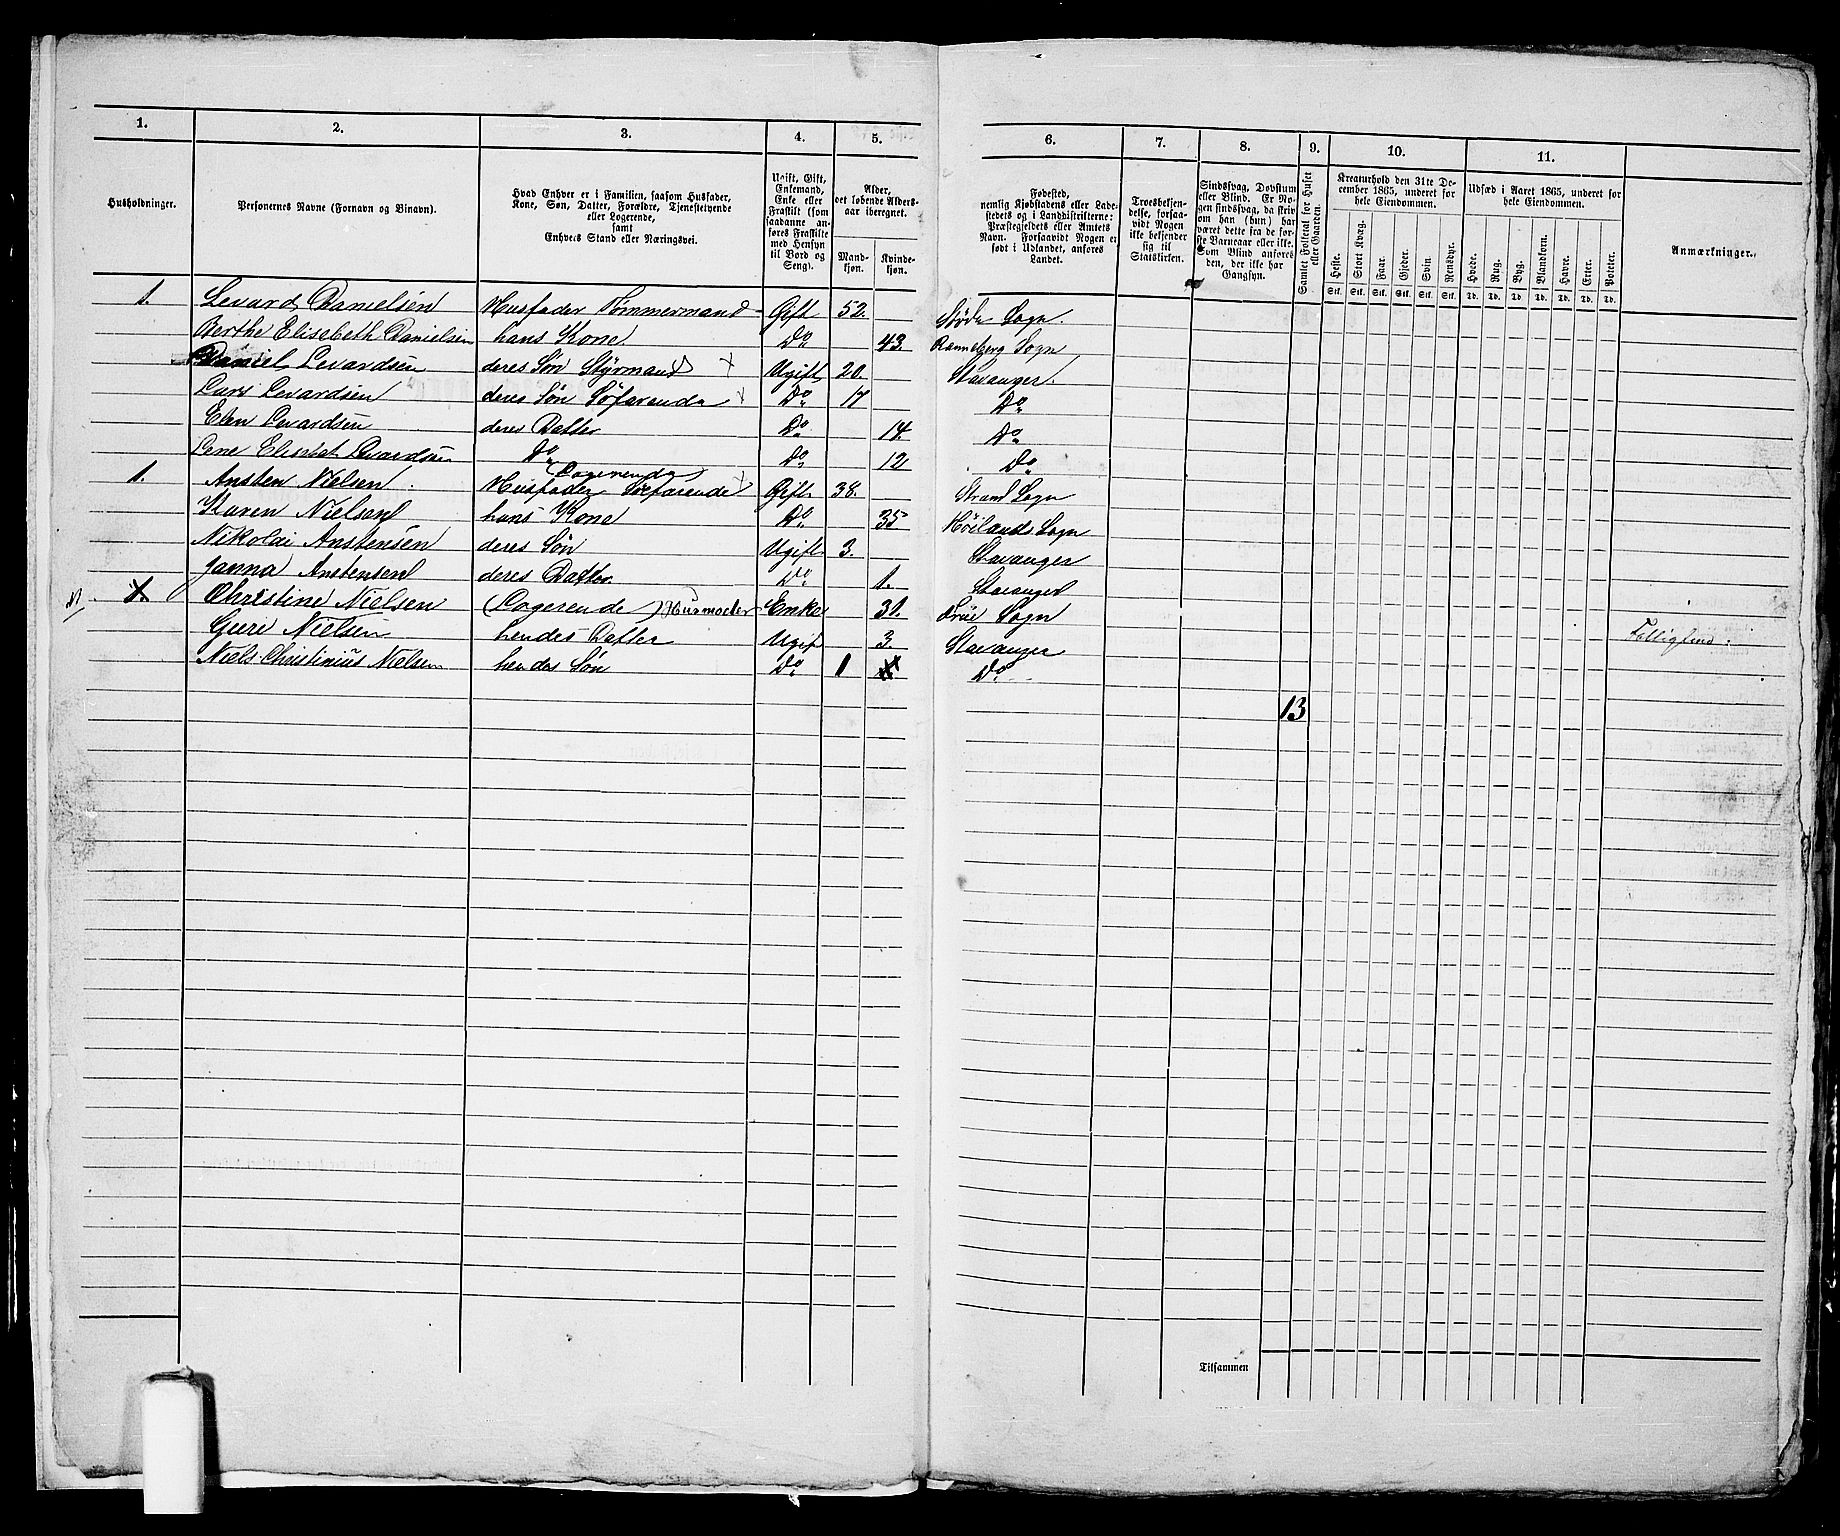 1. 2. 3. 4. 5. 6. 7. 8. 9. 10. 11.
Husholdninger.
Personernes Navne (Fornavn og Binavn).
Hvad Enhver er i Familien, saasom Husfader,
Kone, Søn, Datter, Forældre, Tjenestetyende
eller Logerende,
samt
Enhvers Stand eller Næringsvei.
Ugift, Gift,
Enkemand,
Enke eller
Fraskilt (som
saadanne an-
føres Fraskilte
med Hensyn
til Bord og
Seng).
Alder,
det løbende Alders-
aar iberegnet.
Mand-
kjøn.
Kvinde-
kjøn.
Fødested,
nemlig Kjøbstadens eller Lade-
stedets og i Landdistrikterne:
Præstegjeldets eller Amtets
Navn. Forsaavidt Nogen er
født i Udlandet, anføres
Landet.
Troesbekjen-
delse, forsaa-
vidt Nogen
ikke bekjender
sig til
Statskirken.
Sindssvag, Døvstum
eller Blind. Er No-
gen sindssvag, da skriv
om han (hun) har
været dette fra de før-
ste Barneaar eller ikke.
Som Blind anføres
den, der ikke har
Gangsyn.
Samlet Folketal for Huset
eller Gaarden.
Kreaturhold den 31te De-
cember 1865, underet for
hele Eiendommen.
Heste. Stort Kvæg. Faar. Gjeder. Svin. Rensdyr.
Stk. Stk. Stk. Stk. Stk. Stk.
Udsæd i Aaret 1865, underet for
hele Eiendommen.
Hvede. Rug. Byg. Blandkorn. Havre. Erter. Poteter.
Td. Td. Td. Td. Td. Td. Td.
Anmærkninger.
1. Levard Danielsen Husfader Tømmermand Gift 52. Sogn.
Berthe Elisebeth Danielsen hans Kone Do 43. Renneberg Sogn
Daniel Levardsen deres Søn Styrmand X Ugift 20. Stavanger.
Lars Levardsen deres Søn Søfarende X Do 17 Do
Elen Levardsen deres Datter Do 14. Do
Lene Elisebet Levardsen Do Do 12 Do
(Logerende
1. Ansten Nielsen. Husfader Søefarende X Gift 38. Strand Sogn
Karen Nielsen hans Kone Do 35 Høilands Sogn
Nikolai Anstensen deres Søn Ugift 3. Stavanger
Janna Anstensen deres Datter Do 1. Stavanger
Christine Nielsen (Logerende) Husmoder Enke 31. Sogn
Guri Nielsen hendes Datter Ugift 3. Stavanger Fattiglem:
Niels Christinius Nielsen hendes Søn Do 1 Do
13
Tilsammen